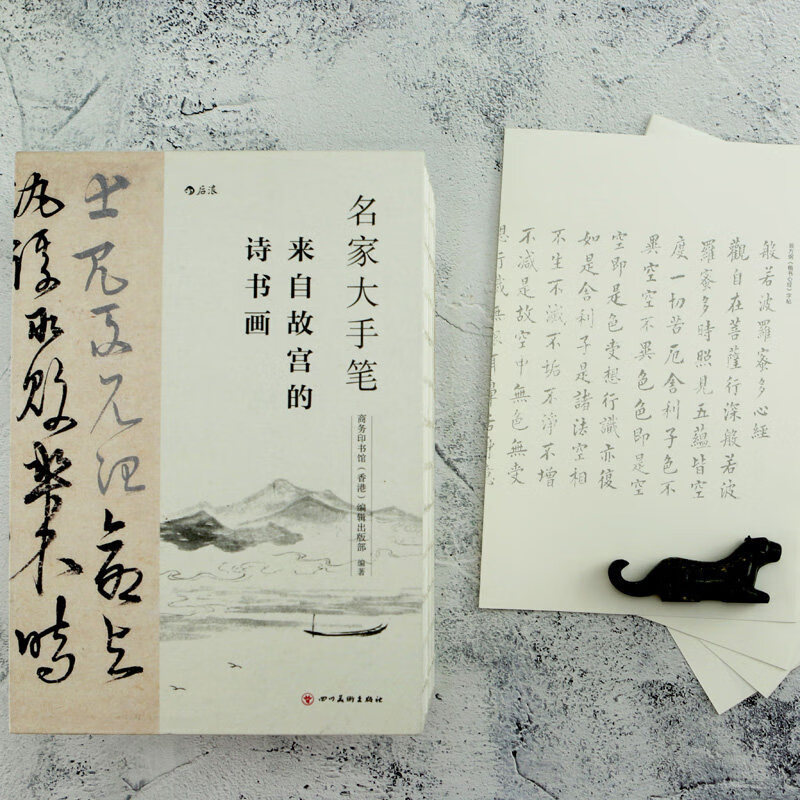 后浪
名家大手笔
来自故宫的
诗书画
商务印书馆（香港）编辑出版部 编著
四川美術出版社
翁方纲《楷书心经》字帖
般若波羅蜜多心經
觀自在菩薩行深般若波
羅蜜多時照見五蘊皆空
度一切苦厄舍利子色不
異空空不異色色即是空
空即是色受想行識亦復
如是舍利子是諸法空相
不生不滅不垢不淨不增
不減是故空中無色無受
想行識無